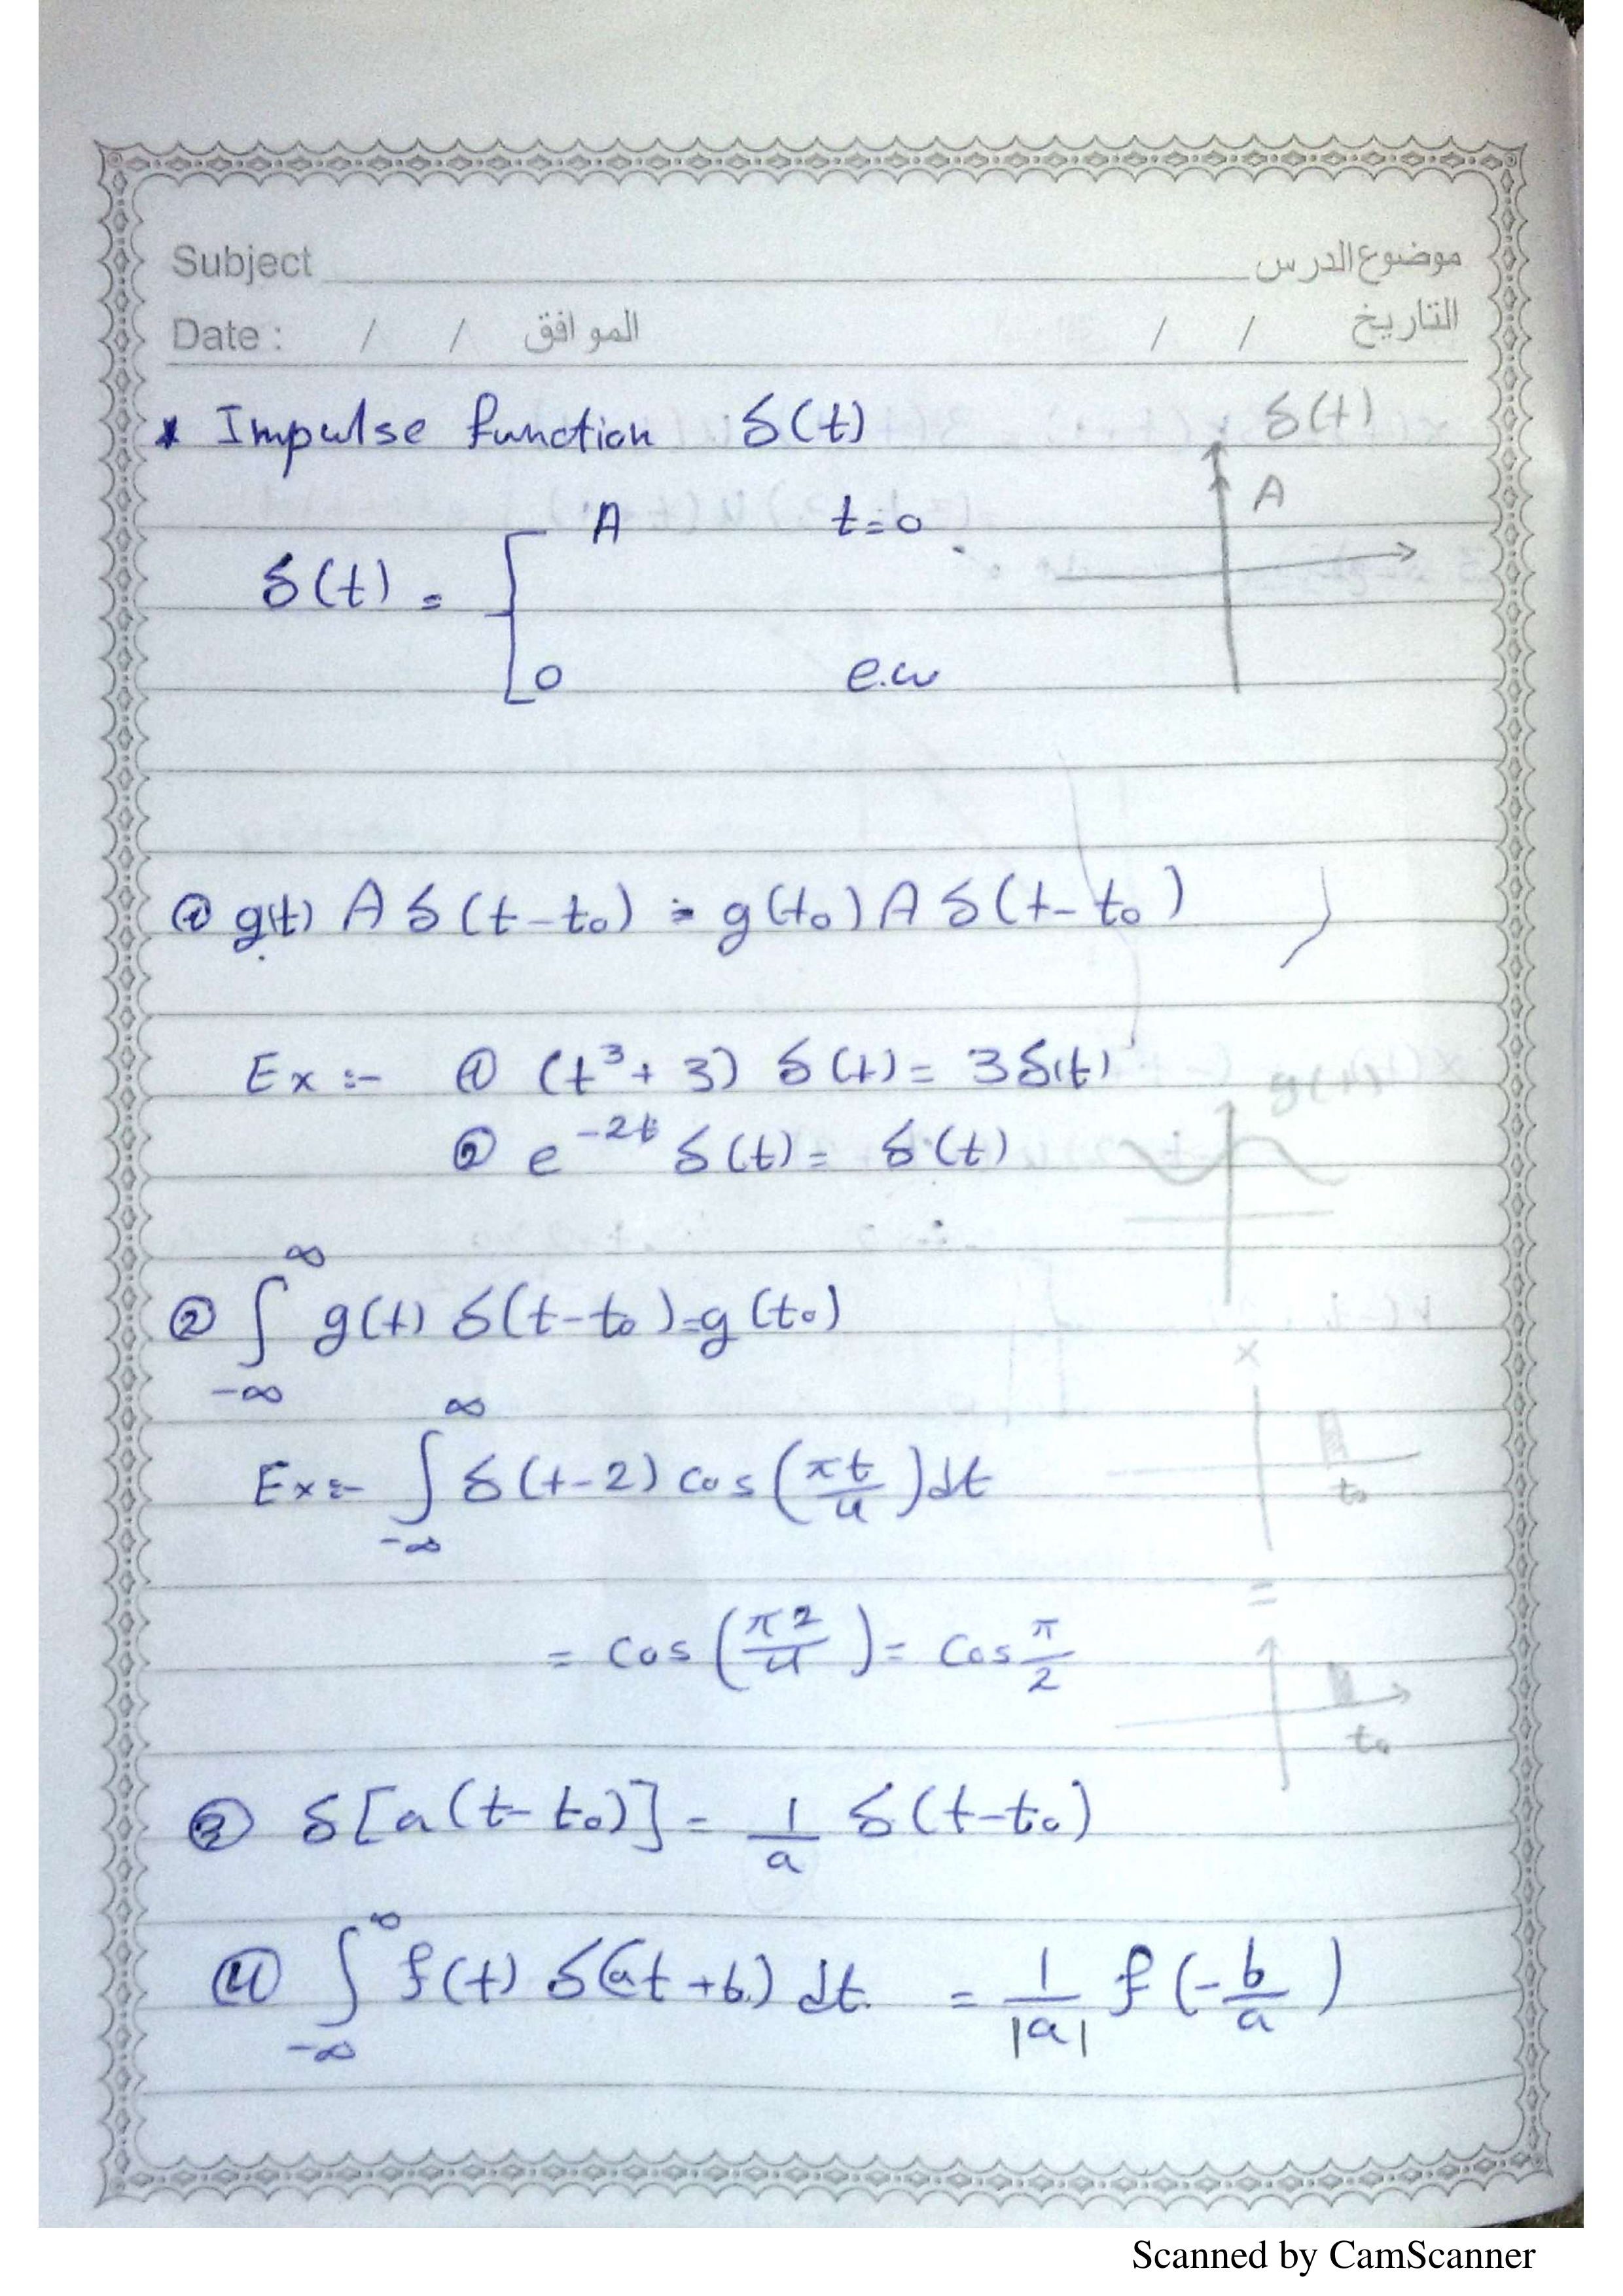 Subject موضوع الدرس
Date : / / الموافق / / التاريخ
* Impulse function δ(t)
δ(t)
A
A t=0
δ(t) =
0 e.w
① g(t) A δ(t-t₀) = g(t₀) A δ(t-t₀)
Ex :- ① (t³+3) δ(t) = 3δ(t)
g(t)
② e^{-2t} δ(t) = δ(t)
② ∫_{-∞}^{∞} g(t) δ(t-t₀) = g(t₀)
×
Ex :- ∫_{-∞}^{∞} δ(t-2) cos(πt/4) dt
t₀
=
= cos(π2/4) = cos π/2
t₀
③ δ[a(t-t₀)] = 1/a δ(t-t₀)
④ ∫_{-∞}^{∞} f(t) δ(at+b) dt = 1/|a| f(-b/a)
Scanned by CamScanner